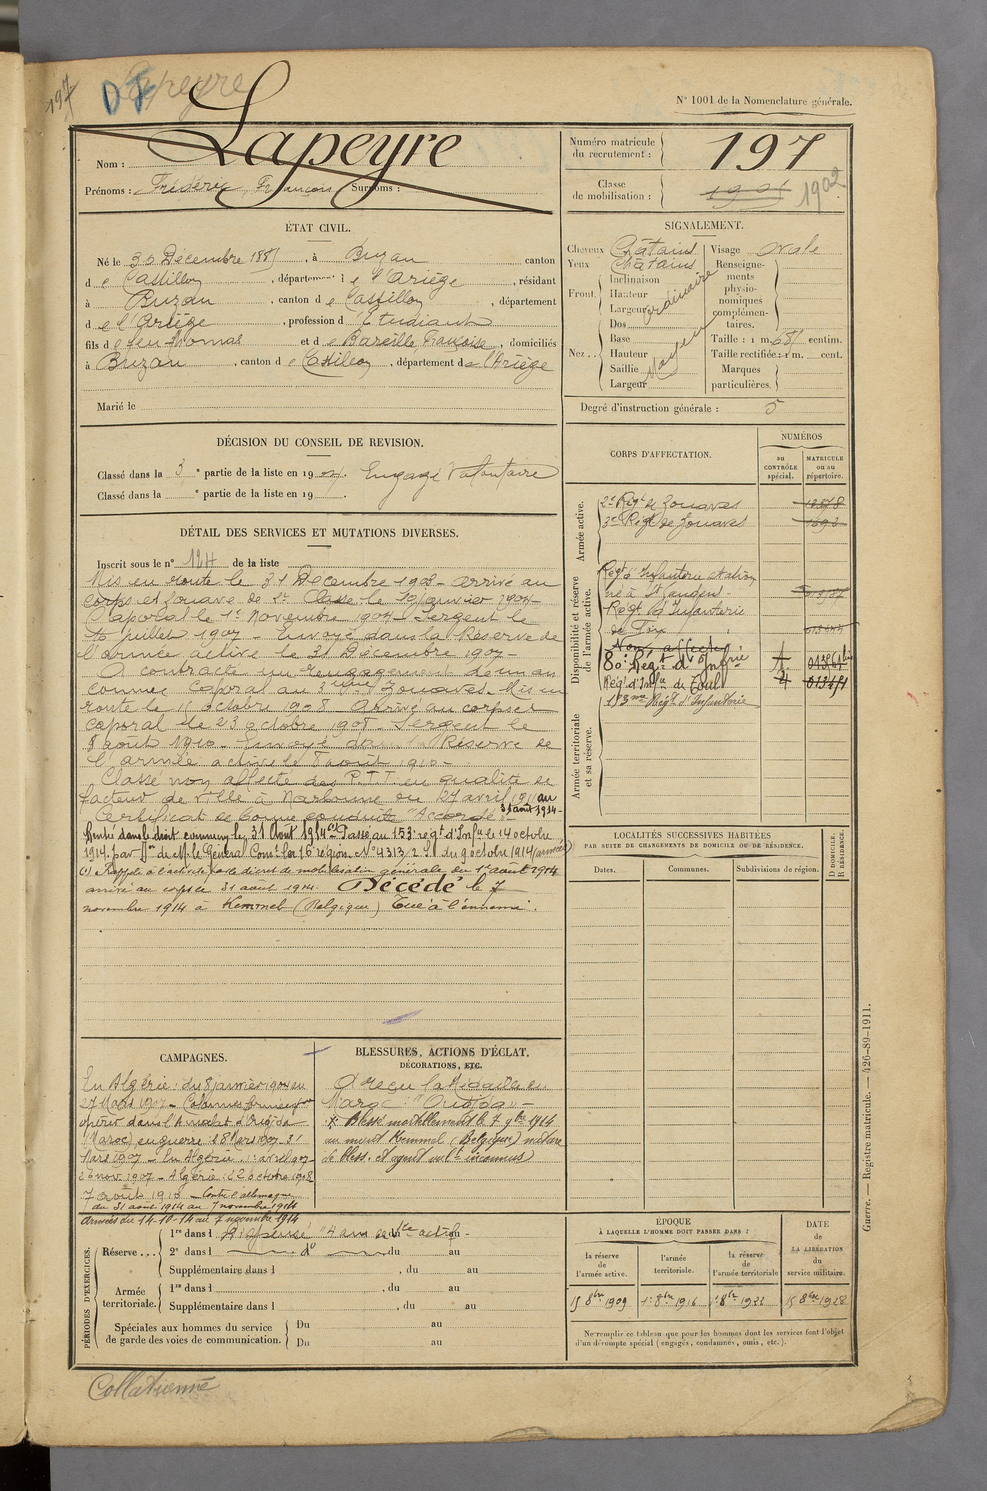 197
D F
Lapeyre
N° 1001 de la Nomenclature générale.
Nom : Lapeyre
Prénoms : Frédéric François Surnoms :
Numéro matricule du recrutement : 197
Classe de mobilisation : 1902
ÉTAT CIVIL.
Né le 30 Décembre 1881, à Buzan canton
de Castillon, département de l'Ariège, résidant
à Buzan, canton de Castillon, département
de l'Ariège, profession d'Etudiant
fils de feu Thomas et de Bareille Françoise, domiciliés
à Buzan, canton de Castillon, département de l'Ariège
Marié le
SIGNALEMENT.
Cheveux Châtains
Yeux Châtains
Front Inclinaison
Hauteur
Largeur ordinaire
Nez Dos
Base
Hauteur
Saillie
Largeur
Moyen
Visage ovale
Renseignements physionomiques complémentaires.
Taille : 1 m. 68 centim.
Taille rectifiée : 1 m. cent.
Marques particulières.
Degré d'instruction générale : 5
DÉCISION DU CONSEIL DE REVISION.
Classé dans la 3e partie de la liste en 190 . Engagé Volontaire
Classé dans la e partie de la liste en 19 .
DÉTAIL DES SERVICES ET MUTATIONS DIVERSES.
Inscrit sous le n° 124 de la liste
Mis en route le 31 Décembre 1903 - arrivé au
corps et zouave de 2e Classe le janvier 1904
Caporal le 1er Novembre 1904 - Sergent le
16 juillet 1907 - Envoyé dans la Réserve de
l'armée active le 31 Décembre 1907 -
A contracté un rengagement de
comme Caporal au 3ème Zouaves. Mis en
route le octobre 1908. Arrivé au corps et
Caporal le 23 octobre 1908. Sergent le
8 août 1910 - Envoyé dans la Réserve de
l'armée active le 8 août 1910 -
Classé non affecté des P.T.T. en qualité de
facteur de ville à Narbonne du 27 avril 1911 au
31 août 1914 -
Certificat de bonne conduite "Accordé" -
Rentré dans le droit commun le 31 Août 1914 (1) Passé au 153e régt d'Infie le 14 octobre
1914 par de M. le Général Comt la 16e région. N° 4313/2 S. du 9 octobre 1914 (armées)
(1) Rappelé à l'activité par le décret de mobilisation générale du 1er août 1914
arrivé au corps le 31 aout 1914. Décédé le 7
novembre 1914 à Kemmel (Belgique) Tué à l'ennemi.
CORPS D'AFFECTATION.
NUMÉROS
au CONTRÔLE spécial.
MATRICULE ou au répertoire.
Armée active.
2e Régt de Zouaves
3e Régt de Zouaves
Disponibilité et réserve de l'armée active.
Régt d'Infanterie stationné à St Gaudens -
Régt d'Infanterie de Foix
Non affecté
80e Régt d'Infrie
Régt d'Infie de Toul
153me Régt d'Infanterie
Armée territoriale et sa réserve.
LOCALITÉS SUCCESSIVES HABITÉES
PAR SUITE DE CHANGEMENTS DE DOMICILE OU DE RÉSIDENCE.
Dates. Communes. Subdivisions de région.
D DOMICILE.
R RÉSIDENCE.
CAMPAGNES.
En Algérie : du 8 janvier 1904 au
27 Mars 1907 - Colonnes
opérer dans l'Amalat d'Oudjda
(Maroc) en guerre : 28 Mars 1907 - 31
Mars 1907 - En Algérie : 1er avril 1907 -
26 nov. 1907 - Algérie : 22 octobre 1908
7 août 1910 - Contre l'allemagne
du 31 aout 1914 au 7 novembre 1914
Armées du 14-10-14 au 7 novembre 1914
BLESSURES, ACTIONS D'ÉCLAT,
DÉCORATIONS, ETC.
A reçu la Médaille du
Maroc "Oudjda" -
Blessé mortellement le 7 9bre 1914
au mont Kemmel (Belgique) nature
de bless. et agent vult inconnus
PÉRIODES D'EXERCICES.
Réserve ... 1re dans l Dispensé 4 ans de sce actif -
2e dans l do du au
Supplémentaire dans l , du au
Armée territoriale. 1re dans l , du au
Supplémentaire dans l , du au
Spéciales aux hommes du service de garde des voies de communication. Du au
Du au
ÉPOQUE
À LAQUELLE L'HOMME DOIT PASSER DANS :
la réserve de l'armée active.
l'armée territoriale.
la réserve de l'armée territoriale
DATE de LA LIBÉRATION du service militaire.
1er 8bre 1916
1er 8bre 1922
Ne remplir ce tableau que pour les hommes dont les services font l'objet
d'un décompte spécial (engagés, condamnés, omis, etc.).
Guerre. — Registre matricule. — 426-89-1911.
Collationné